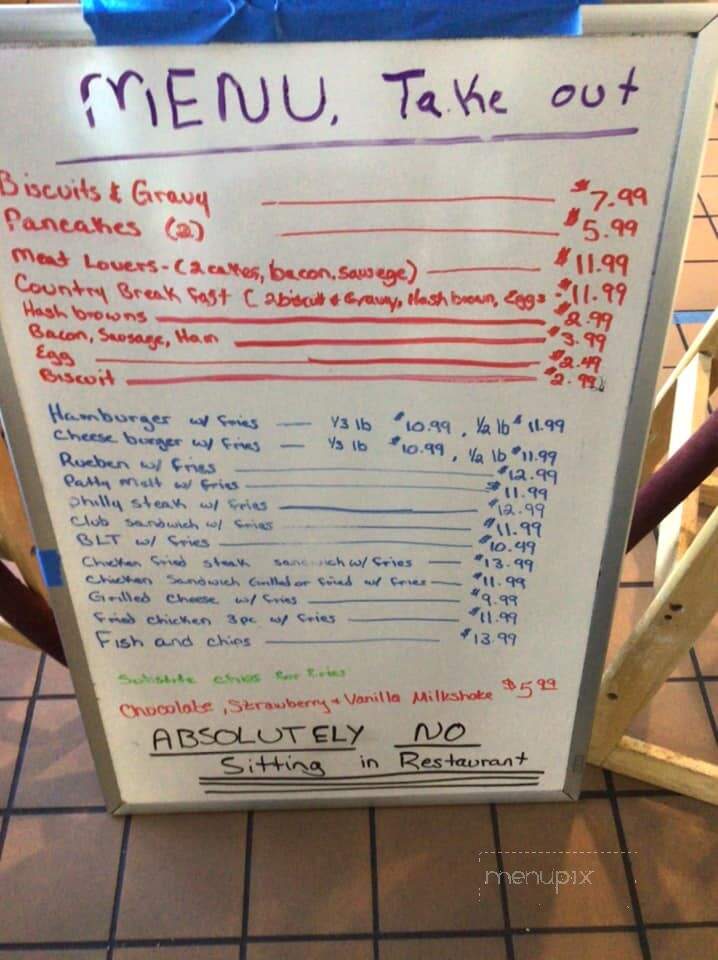 MENU, Take out
Biscuits & Gravy $7.99
Pancakes (2) $5.99
Meat Lovers - (2 cakes, bacon, sausege) $11.99
Country Breakfast (2 biscuit & Gravy, Hash brown, Eggs - $11.99
Hash browns $2.99
Bacon, Sausage, Ham $3.99
Egg $2.49
Biscuit $2.99
Hamburger w/ fries — 1/3 lb $10.99, 1/2 lb $11.99
Cheese burger w/ fries — 1/3 lb $10.99, 1/2 lb $11.99
Rueben w/ fries $12.99
Patty melt w/ fries $11.99
Philly steak w/ fries $12.99
Club sandwich w/ fries $11.99
BLT w/ fries $10.49
Chicken fried steak sandwich w/ fries — $13.99
Chicken Sandwich Grilled or fried w/ fries — $11.99
Grilled Cheese w/ fries $9.99
Fried chicken 3pc w/ fries $11.99
Fish and chips $13.99
Substitute chips for fries
Chocolate, Strawberry & Vanilla Milkshake $5.99
ABSOLUTELY NO
Sitting in Restaurant
menupix